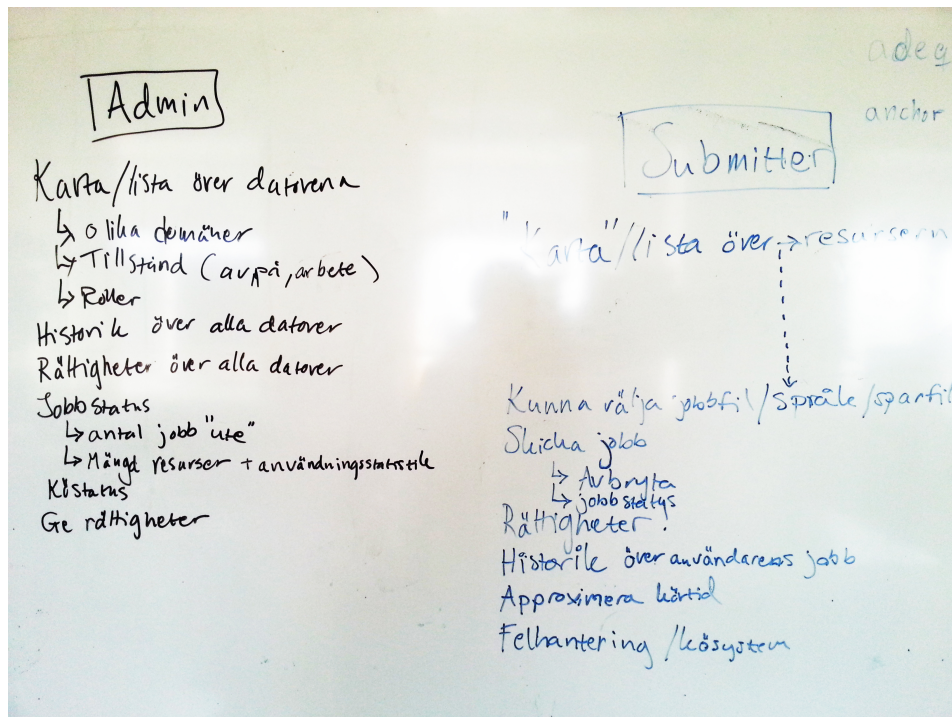 Admin
Karta/lista över datorerna
↳ olika domäner
↳ Tillstånd (av, på, arbete)
↳ Roller
Historik över alla datorer
Rättigheter över alla datorer
Jobbstatus
↳ antal jobb "ute"
↳ Mängd resurser + användningsstatistik
Köstatus
Ge rättigheter
adeq
anchor
Submitter
"Karta"/lista över → resursern
Kunna välja jobbfil/Språk/sparfil
Skicka jobb
↳ Avbryta
↳ jobbstatus
Rättigheter!
Historik över användarens jobb
Approximera körtid
Felhantering/kösystem